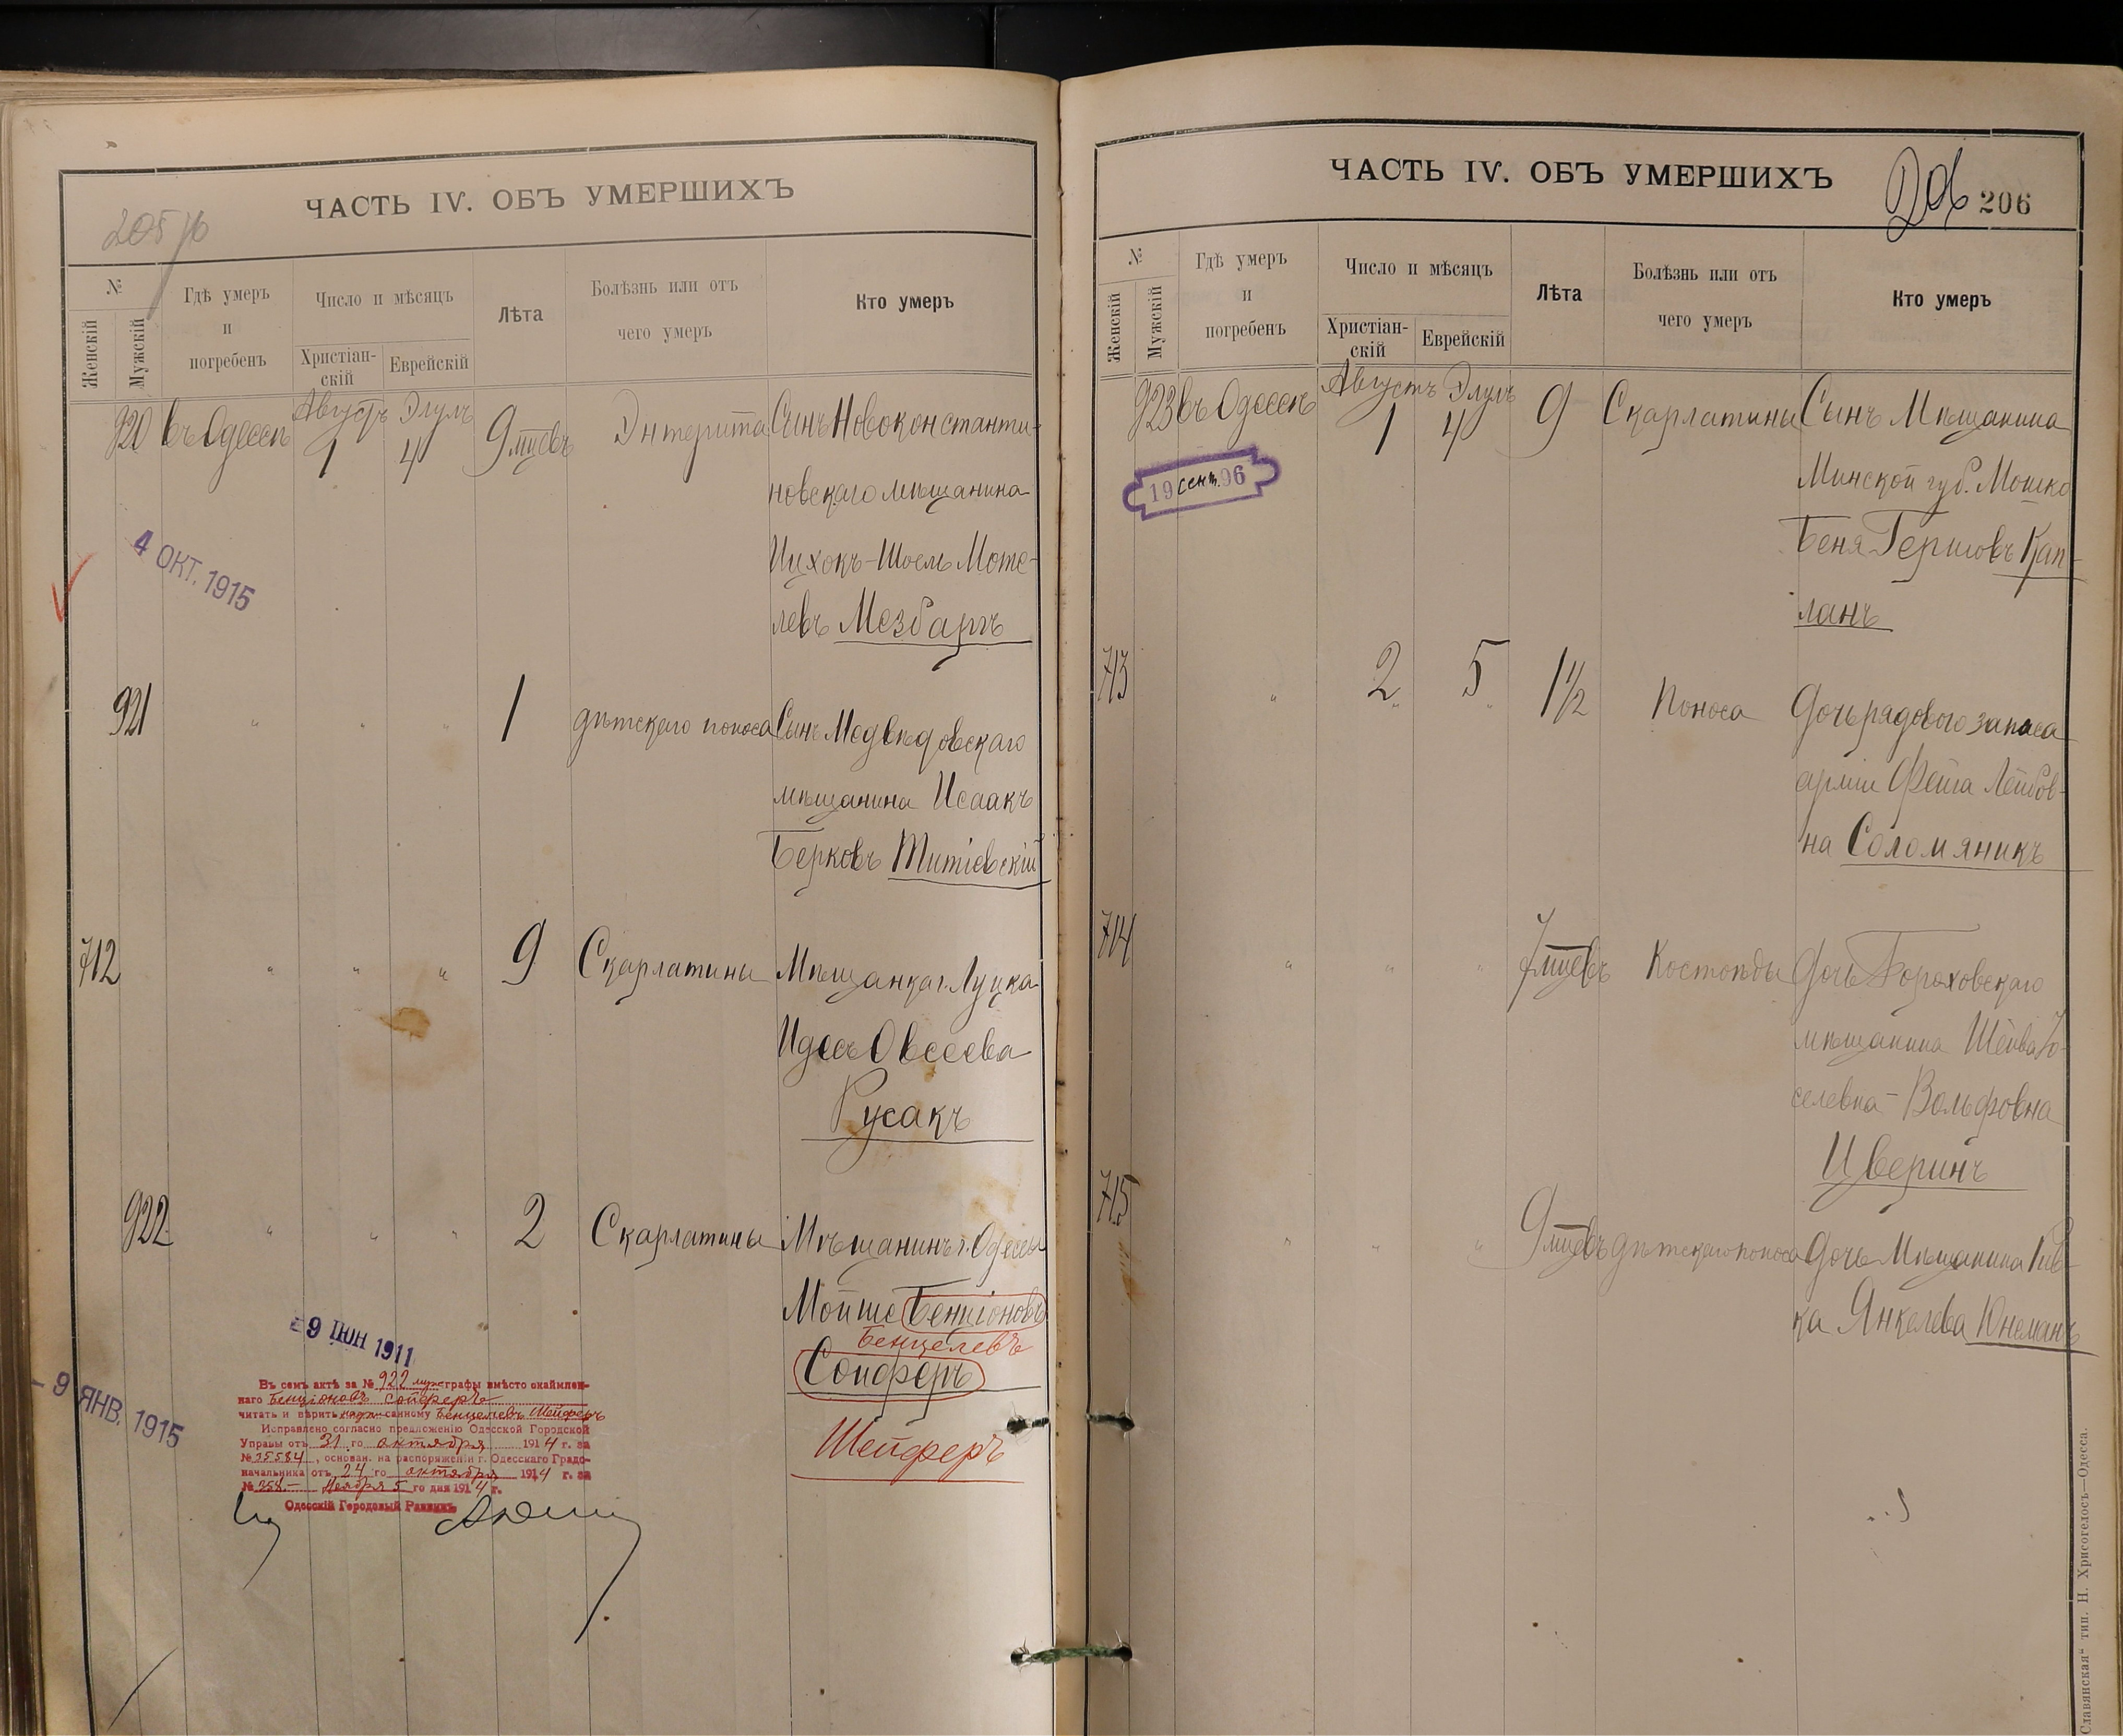 ЧАСТЬ IV. ОБЪ УМЕРШИХЪ
205
№
Женскій
Мужскій
Гдѣ умеръ
и
погребенъ
Число и мѣсяцъ
Христіан-
скій
Еврейскій
Лѣта
Болѣзнь или отъ
чего умеръ
Кто умеръ
920 въ Одессѣ Августъ 1 Элулъ 4 9 мцевъ Энтерита Сынъ Новоконстанти-
новскаго мѣщанина
Ицхокъ-Шоель Моте-
левъ Мезбаргъ
4 ОКТ. 1915
921 " " " 1 дѣтскаго поноса Сынъ Медвѣдовскаго
мѣщанина Исаакъ
Берковъ Титіевскій
712 " " " 9 Скарлатины Мѣщанка г. Луцка
Идесъ Овсеева
Русакъ
922 " " " 2 Скарлатины Мѣщанинъ г. Одессы
Мойше Бенціоновъ
Бенцелевъ
Сойферъ
Шейферъ
29 IЮН 1911
- 9 ЯНВ. 1915
Въ семъ актѣ за № 922 муж графы вмѣсто окаймлен-
наго Бенціоновъ Сойферъ
читать и вѣрить надписанному Бенцелевъ Шейферъ
Исправлено согласно предложенію Одесской Городской
Управы отъ 31 го октября 1914 г. за
№ 35584, основан. на распоряженіи г. Одесскаго Градо-
начальника отъ 24 го октября 1914 г. за
№ 358. Ноября 5 го дня 1914 г.
Одесскій Городовый Раввинъ
ЧАСТЬ IV. ОБЪ УМЕРШИХЪ
206 206
№
Женскій
Мужскій
Гдѣ умеръ
и
погребенъ
Число и мѣсяцъ
Христіан-
скій
Еврейскій
Лѣта
Болѣзнь или отъ
чего умеръ
Кто умеръ
923 въ Одессѣ Августъ 1 Элулъ 4 9 Скарлатины Сынъ Мѣщанина
Минской губ. Мошко
Беня Гершовъ Кап-
ланъ
19 сент. 96
713 " 2 5 1 1/2 Поноса Дочь рядового запаса
арміи Фейга Лейбов-
на Соломяникъ
714 " " " 7 мцевъ Костоѣды Дочь Гороховскаго
мѣщанина Шейва Іо-
селевна-Вольфовна
Цверинъ
715 " " " 9 мцевъ дѣтскаго поноса Дочь Мѣщанина Рив-
ка Янкелева Юнеманъ
Славянская“ тип. Н. Хрисогелосъ—Одесса.